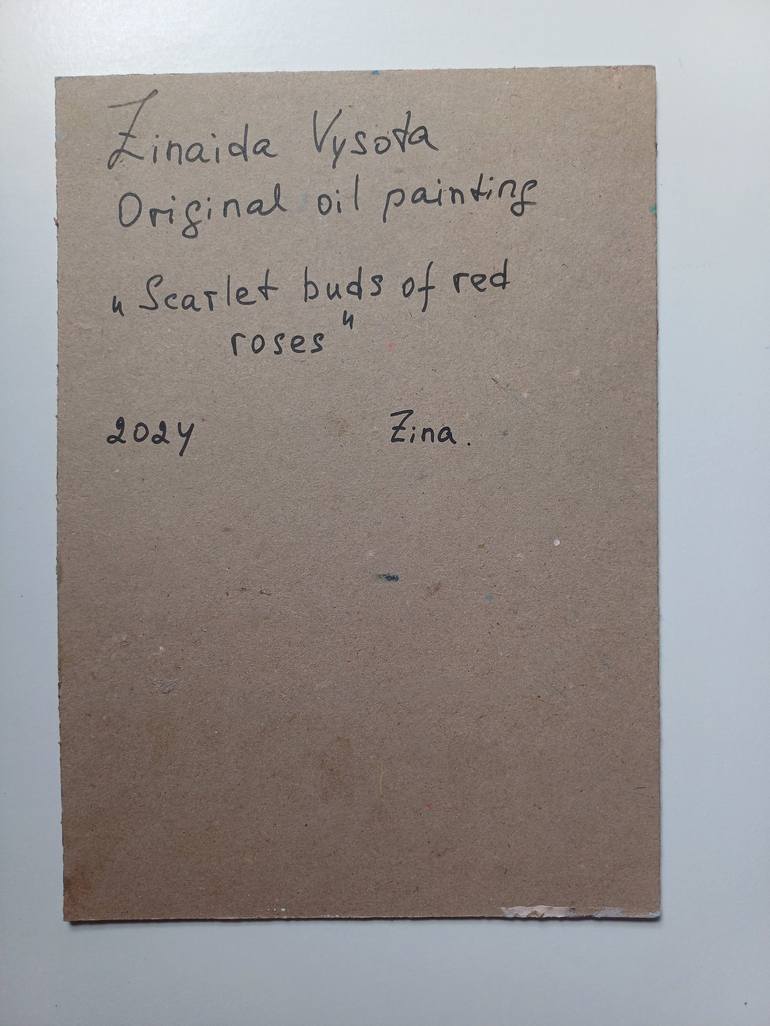 Zinaida Vysota
Original oil painting
„Scarlet buds of red
roses"
2024 Zina.